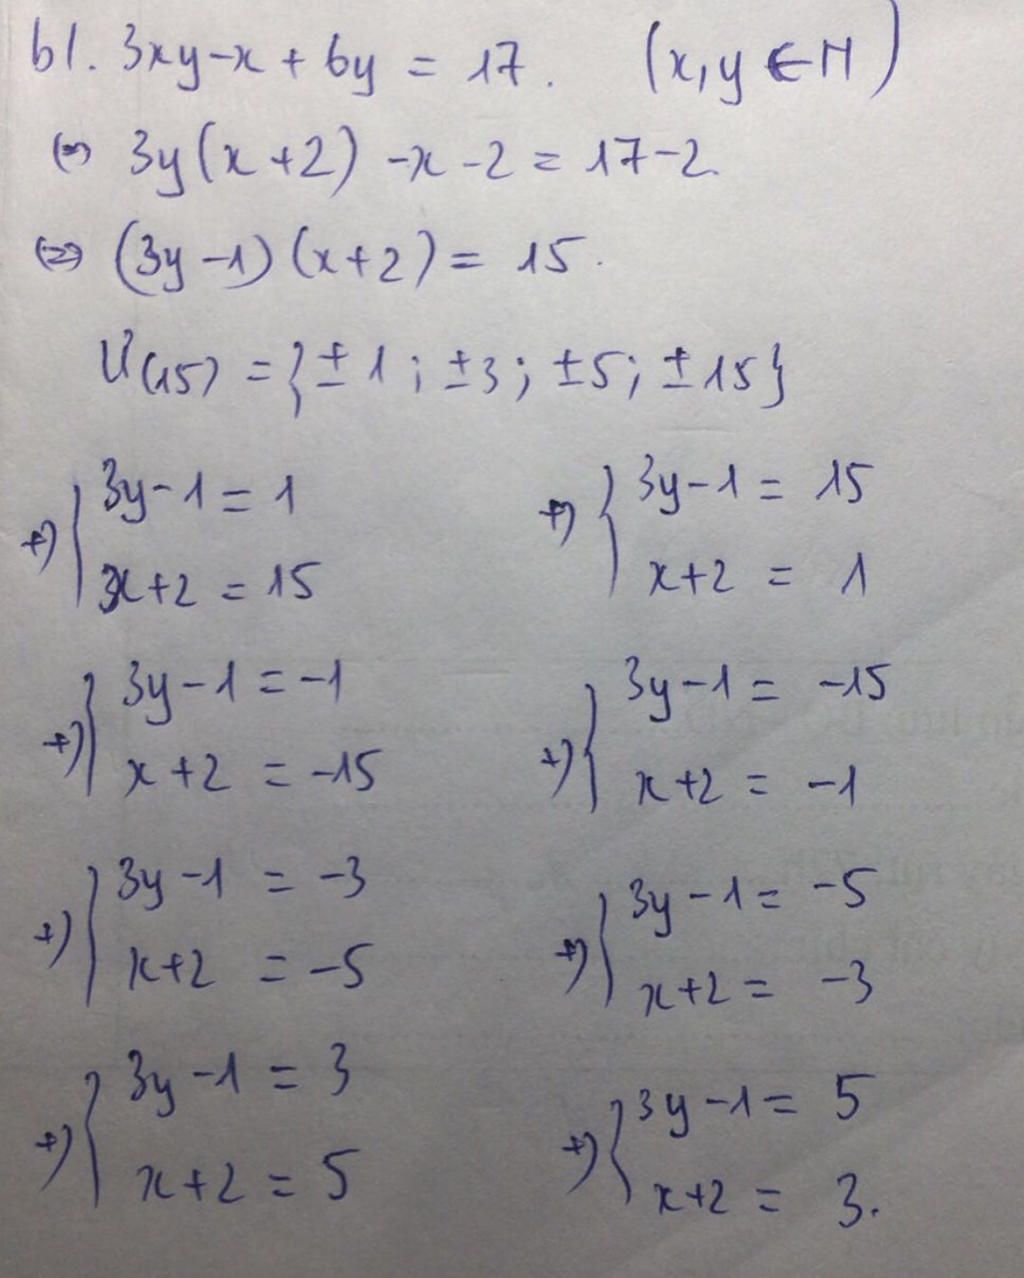 b1. 3xy-x + 6y = 17. (x,y ∈ N)
(=) 3y(x+2) -x -2 = 17-2.
(=) (3y-1)(x+2) = 15.
Ư(15) = {±1; ±3; ±5; ±15}
+) { 3y-1 = 1
x+2 = 15
+) { 3y-1 = 15
x+2 = 1
+) { 3y-1 = -1
x+2 = -15
+) { 3y-1 = -15
x+2 = -1
+) { 3y-1 = -3
x+2 = -5
+) { 3y-1 = -5
x+2 = -3
+) { 3y-1 = 3
x+2 = 5
+) { 3y-1 = 5
x+2 = 3.